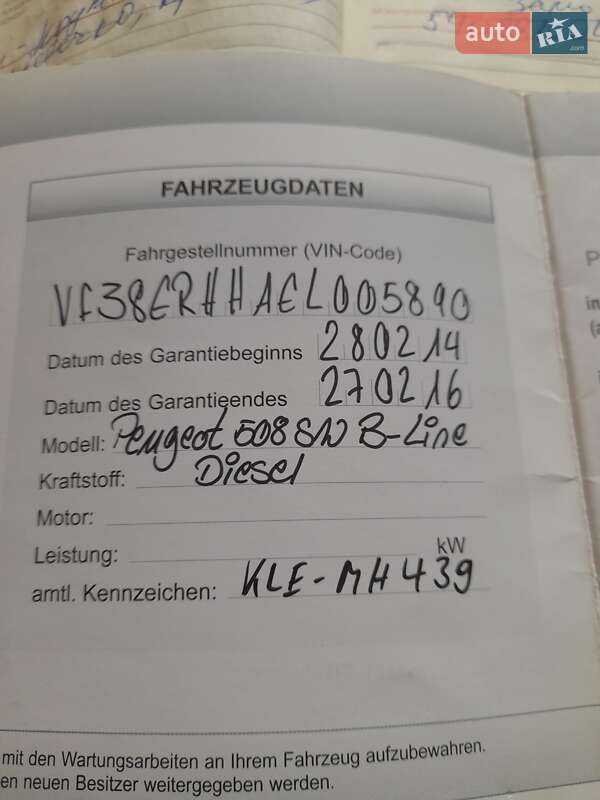 auto RIA .com
FAHRZEUGDATEN
Fahrgestellnummer (VIN-Code)
VF38ERHHAEL005890
Datum des Garantiebeginns 280214
Datum des Garantieendes 270216
Modell: Peugeot 508 SW B-Line
Kraftstoff: Diesel
Motor:
Leistung: kW
amtl. Kennzeichen: KLE-MH439
mit den Wartungsarbeiten an Ihrem Fahrzeug aufzubewahren.
en neuen Besitzer weitergegeben werden.